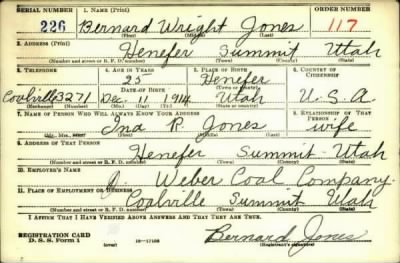 SERIAL NUMBER 1. NAME (Print) ORDER NUMBER
226 Bernard Wright Jones 117
(First) (Middle) (Last)
2. ADDRESS (Print)
Henefer Summit Utah
(Number and street or R. F. D. number) (Town) (County) (State)
3. TELEPHONE 4. AGE IN YEARS 5. PLACE OF BIRTH 6. COUNTRY OF CITIZENSHIP
25 Henefer
DATE OF BIRTH (Town or county)
Coalville 3271 Dec. 11 1914 Utah U.S.A.
(Exchange) (Number) (Mo.) (Day) (Yr.) (State or country)
7. NAME OF PERSON WHO WILL ALWAYS KNOW YOUR ADDRESS 8. RELATIONSHIP OF THAT PERSON
Ina R. Jones wife
(Mr., Mrs., Miss) (First) (Middle) (Last)
9. ADDRESS OF THAT PERSON
Henefer Summit Utah
(Number and street or R. F. D. number) (Town) (County) (State)
10. EMPLOYER'S NAME
Weber Coal Company.
11. PLACE OF EMPLOYMENT OR BUSINESS
Coalville Summit Utah
(Number and street or R. F. D. number) (Town) (County) (State)
I AFFIRM THAT I HAVE VERIFIED ABOVE ANSWERS AND THAT THEY ARE TRUE.
REGISTRATION CARD
D. S. S. Form 1 16—17105 Bernard Jones
(Registrant's signature)